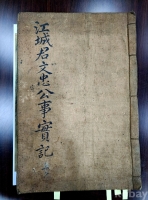 江城君文忠公事實記
bay